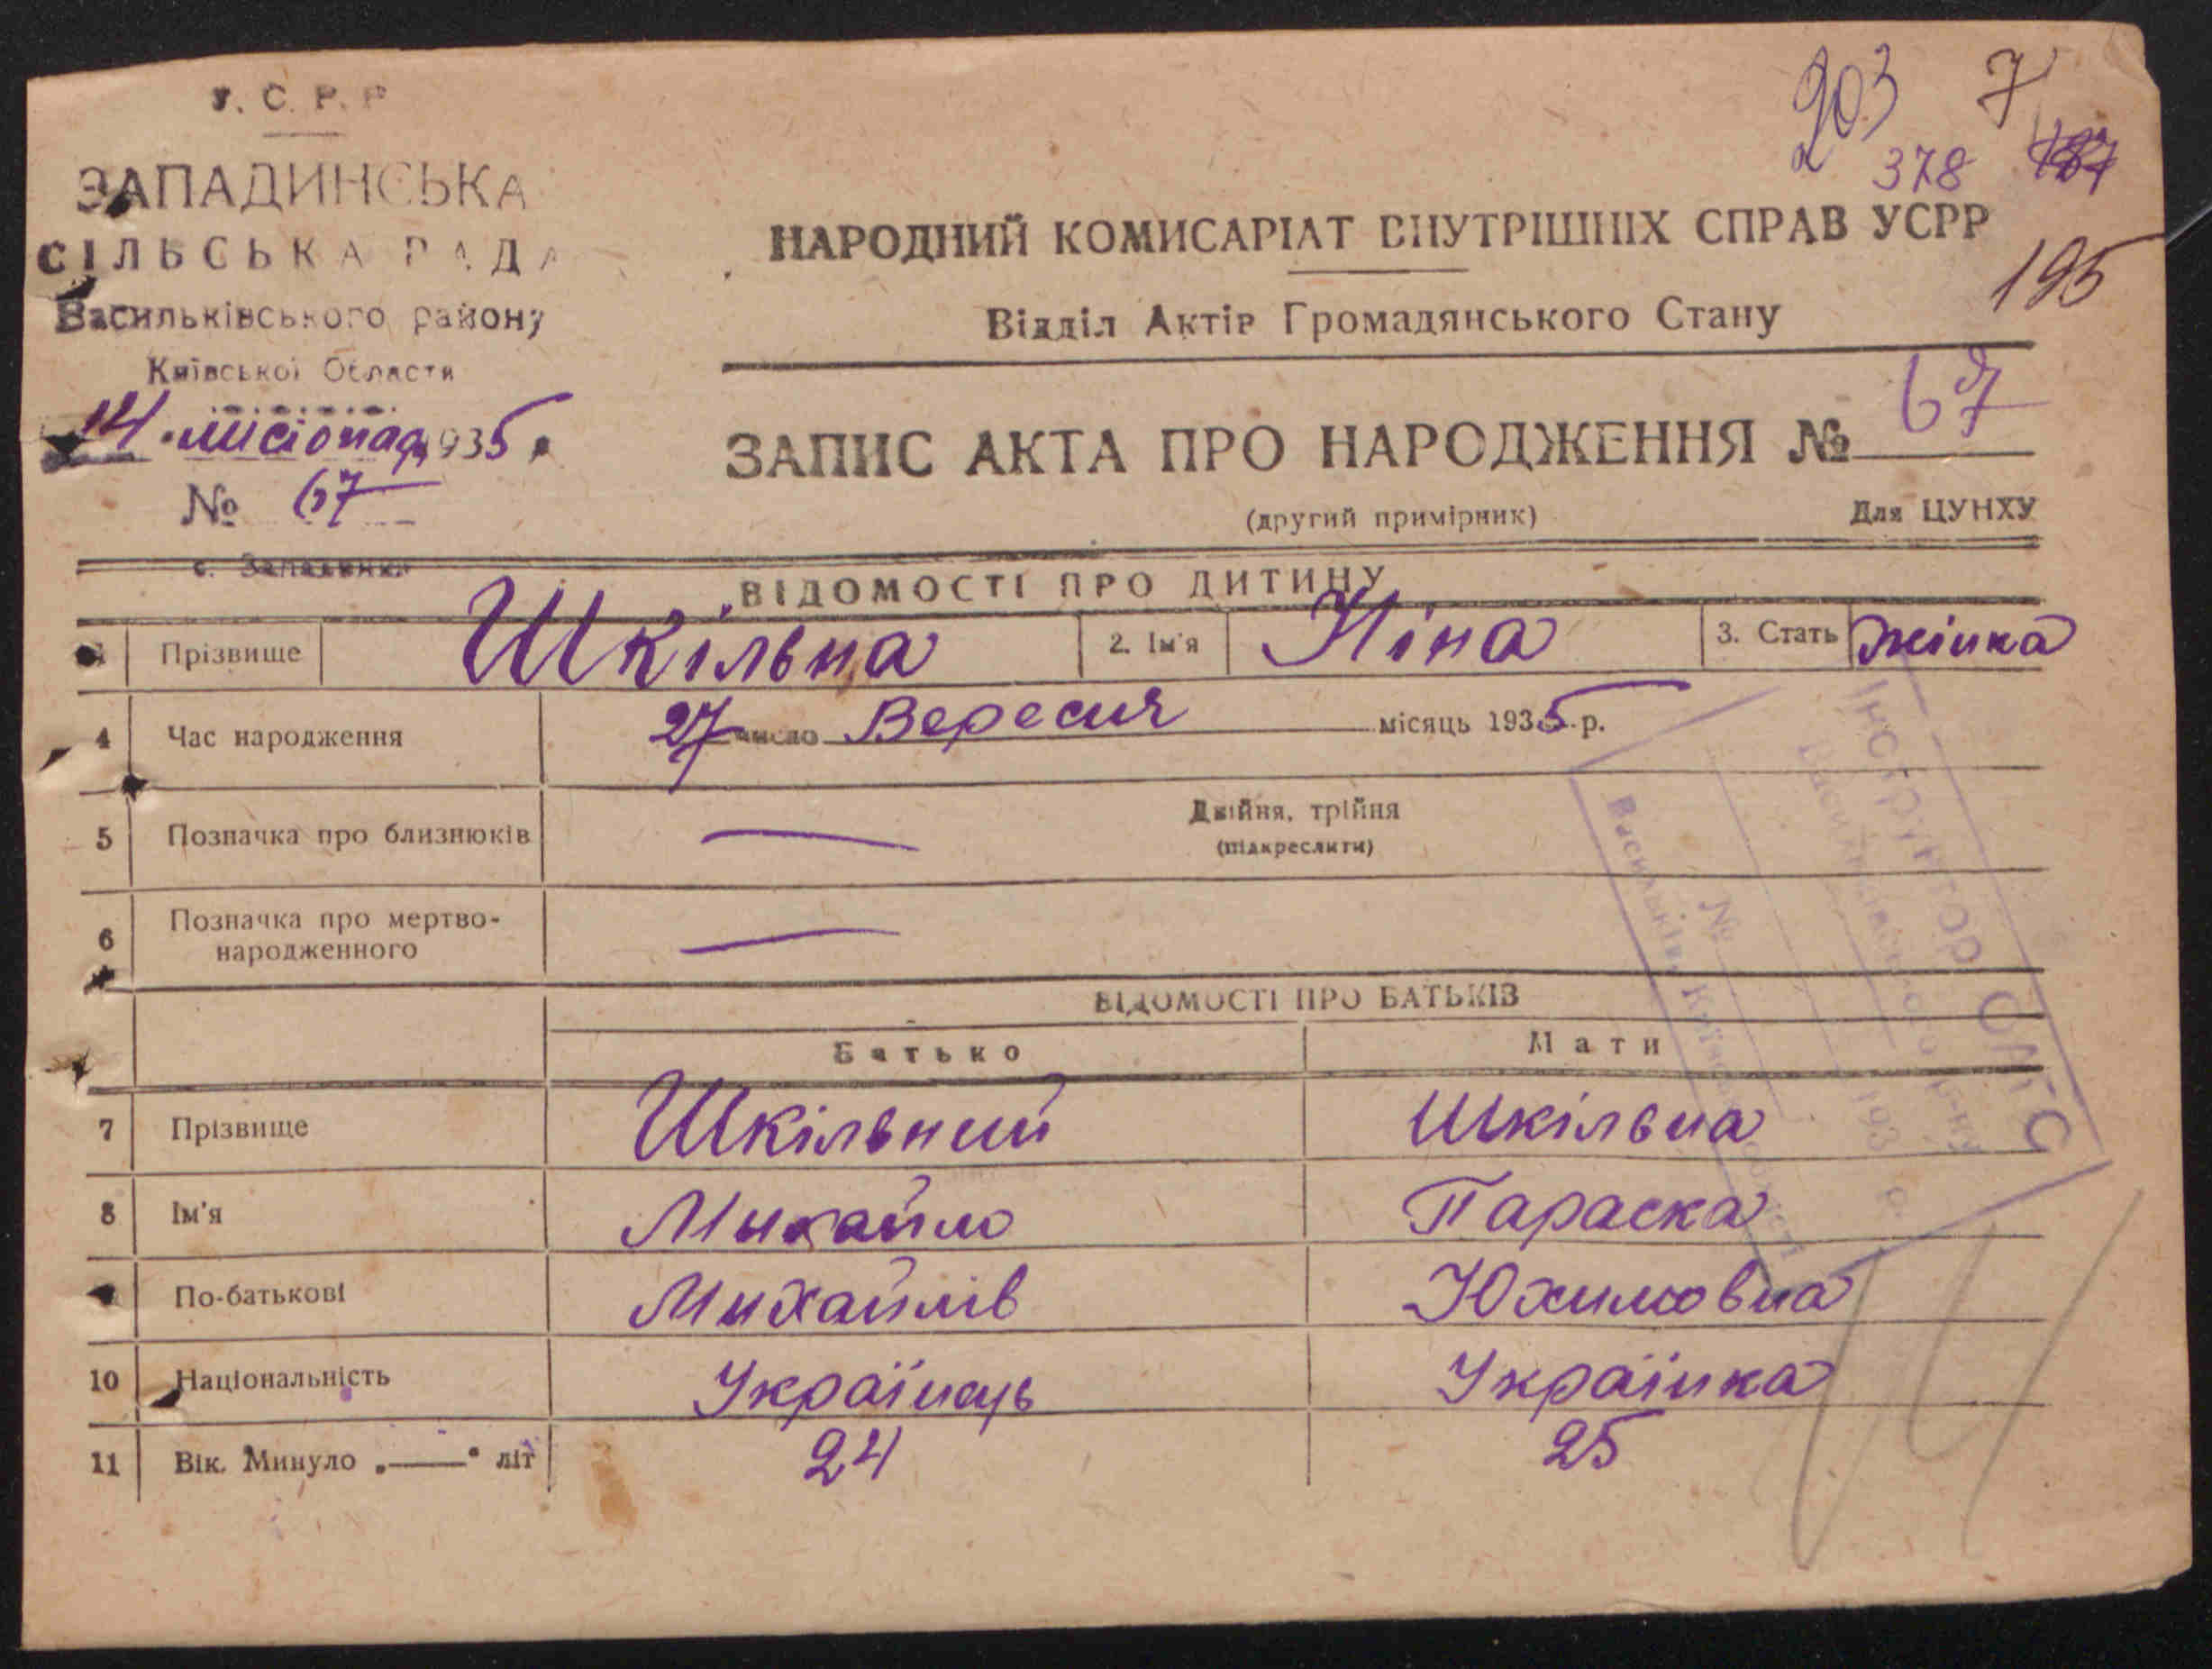 У. С. Р. Р
ЗАПАДИНСЬКА
СІЛЬСЬКА РАДА
Васильківського району
Київської Области
14 листопад 1935 р.
№ 67
с. Западинка
203 7
378 187
195
НАРОДНИЙ КОМИСАРІАТ ВНУТРІШНІХ СПРАВ УСРР
Відділ Актів Громадянського Стану
ЗАПИС АКТА ПРО НАРОДЖЕННЯ № 67
(другий примірник) Для ЦУНХУ
ВІДОМОСТІ ПРО ДИТИНУ
Прізвище Шкільна 2. Ім'я Ніна 3. Стать жінка
4 Час народження 27 число Вересня місяць 1935 р.
5 Позначка про близнюків — Двійня, трійня
(підкреслити)
6 Позначка про мертво-
народженного —
ВІДОМОСТІ ПРО БАТЬКІВ
Батько Мати
7 Прізвище Шкільний Шкільна
8 Ім'я Михайло Параска
По-батькові Михайлів Юхимовна
10 Національність Українець Українка
11 Вік. Минуло „——" літ 24 25
Інструктор ОАГС
Васильківського р-ну
№
193 р.
Васильків, Київської области